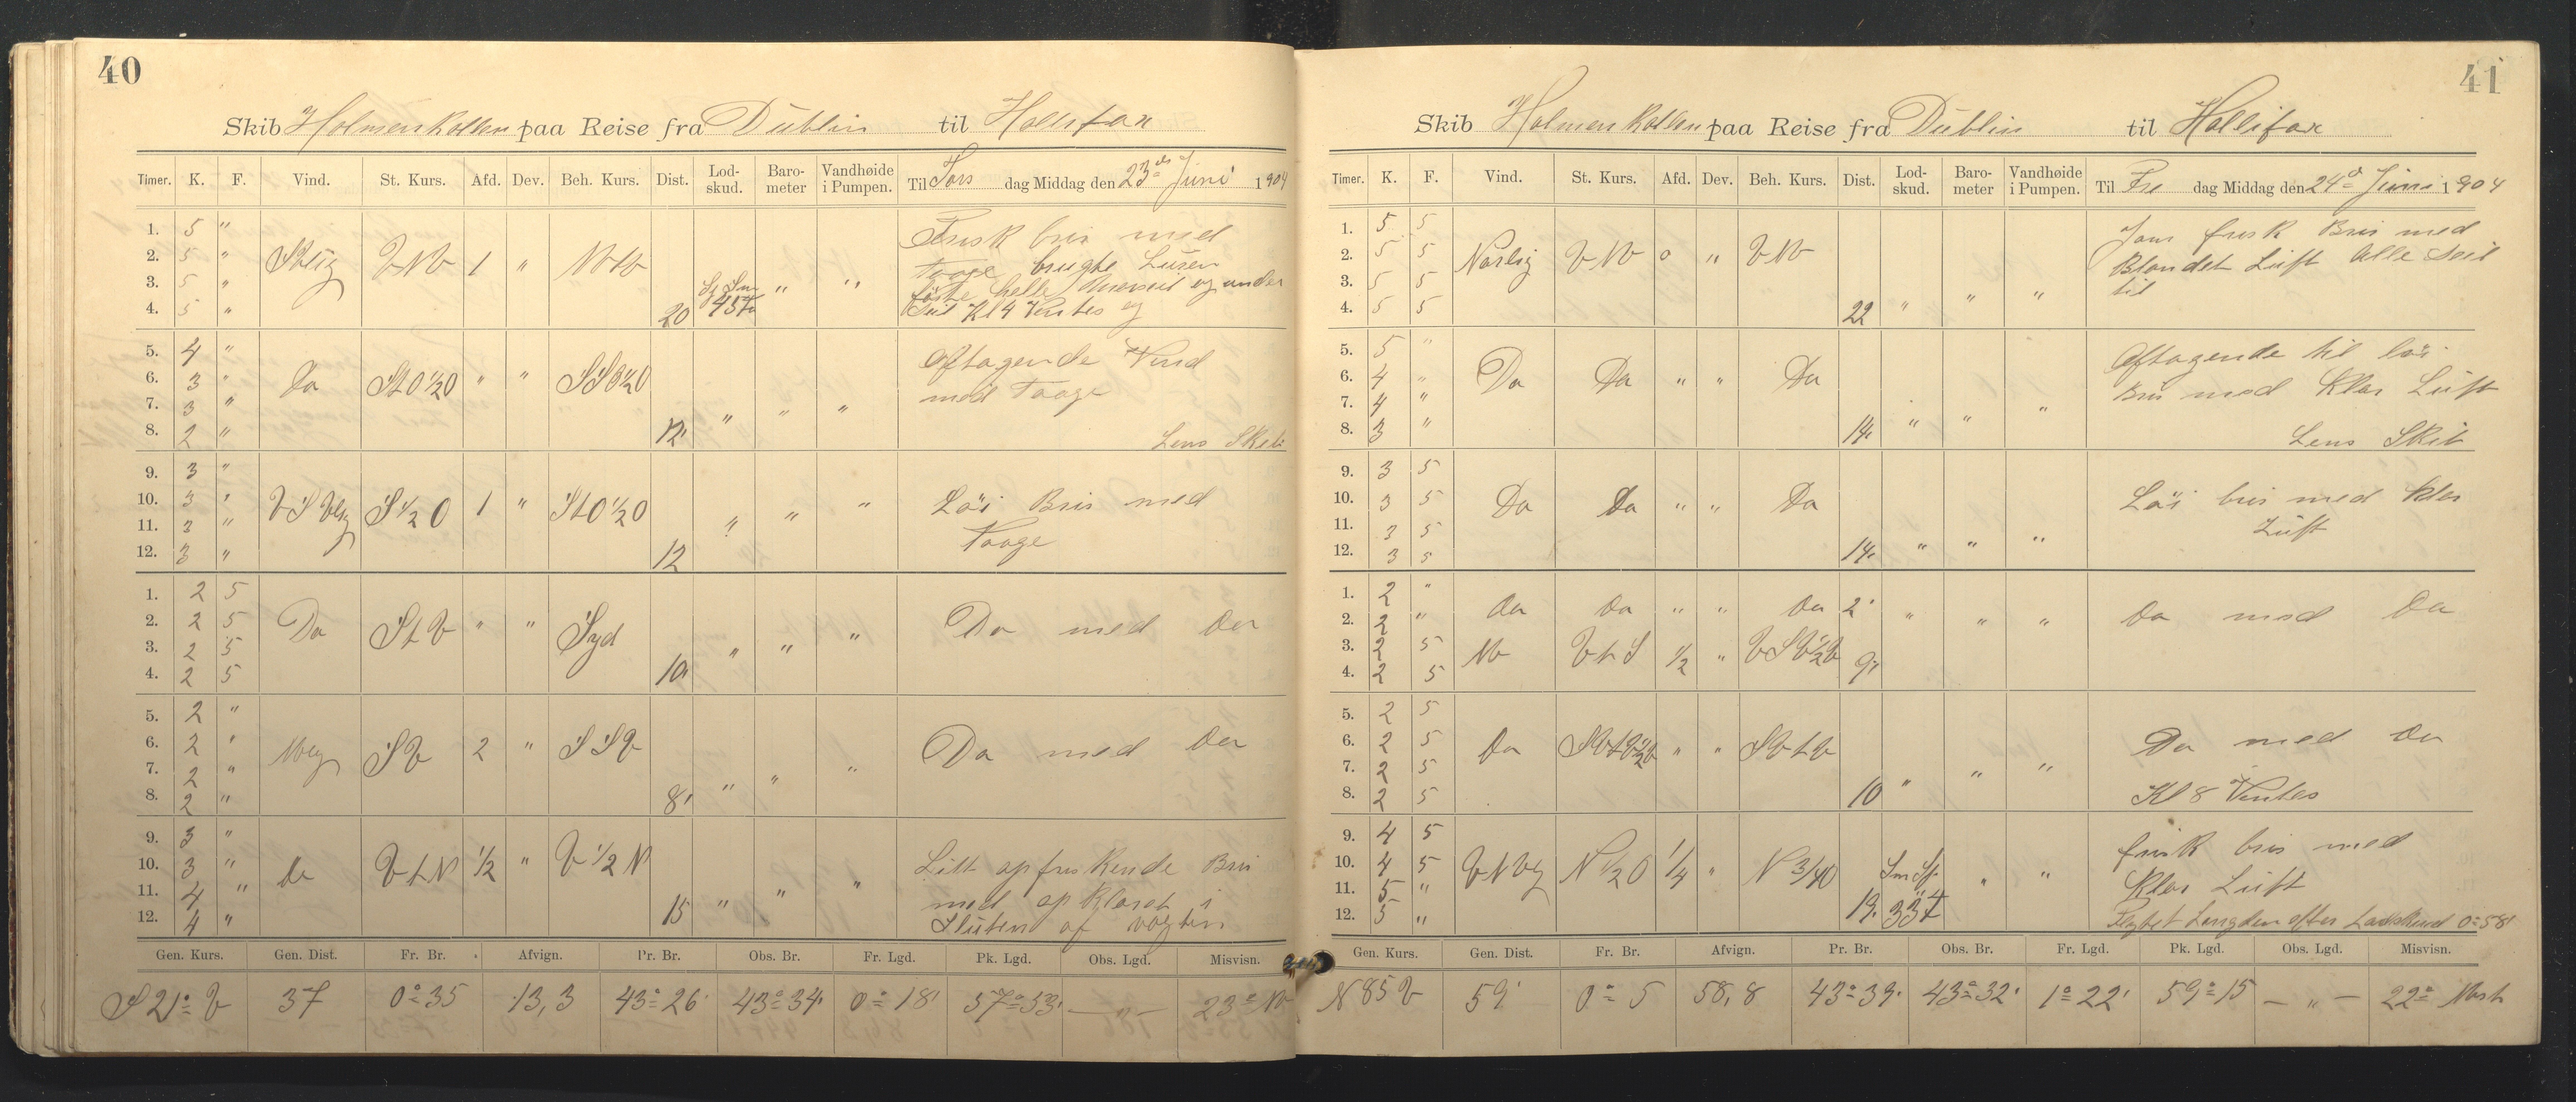 40
Skib Holmenkollen paa Reise fra Dublin til Hallifax
Timer. K. F. Vind. St. Kurs. Afd. Dev. Beh. Kurs. Dist. Lod-skud. Baro-meter Vandhøide i Pumpen. Til Tors dag Middag den 23de Juni 1904
1. 5 " Frisk bris med
2. 5 " Stlig VNV 1 " Taage brugte Luren
3. 5 " " "
4. 5 " 20 45 Seil Kl 4 Ventes og
5. 4 " Aftagende Vind
6. 3 " Do StO½O " " SSO½O med Taage
7. 3 " " " "
8. 2 " 12' Lens Skib
9. 3 "
10. 3 " VSVlig S½O 1 " StO½O Löi Bris med
11. 3 " " " " Taage
12. 3 " 12
1. 2 5
2. 2 5 Do StV " " Syd Do med Do
3. 2 5 " " "
4. 2 5 10'
5. 2 "
6. 2 " SV 2 " SSV Do med Do
7. 2 " " " "
8. 2 " 8'
9. 3 "
10. 3 " Do VtN ½ " V½N Litt opfriskende Bris
11. 4 " " " " med opklaret i
12. 4 " 15 Slüten af vagten
Gen. Kurs. Gen. Dist. Fr. Br. Afvign. Pr. Br. Obs. Br. Fr. Lgd. Pk. Lgd. Obs. Lgd. Misvisn.
S 21° V 37 0° 35 13,3 43° 26' 43° 34' 0° 18' 57° 53' — " — 23°
41
Skib Holmenkollen paa Reise fra Dublin til Hallifax
Timer. K. F. Vind. St. Kurs. Afd. Dev. Beh. Kurs. Dist. Lod-skud. Baro-meter Vandhøide i Pumpen. Til Fre dag Middag den 24de Juni 1904
1. 5 5 Jevn frisk Bris med
2. 5 5 Norlig VNV 0 " VNV Blandet Luft Alle Seil
3. 5 5 " " " til
4. 5 5 22
5. 5 " Aftagende til löi
6. 4 " Do Do " " Do Bris med Klar Luft
7. 4 " " " "
8. 3 " 14' Lens Skib
9. 3 5
10. 3 5 Do Do " " Do Löi bris med klar
11. 3 5 Luft
12. 3 5 14' " " "
1. 2 "
2. 2 " Do Do " " Do 2' " " " Do med Do
3. 2 5 NV VtS ½ " VSV½V
4. 2 5 9'
5. 2 5
6. 2 5 Do SVtV½V " " SVtV Do med Do
7. 2 5 " " "
8. 2 5 10 Kl 8 Ventes
9. 4 5 frisk bris med
10. 4 5 VNVlig N½O ¼ " N¾O " "
11. 5 " Klar Luft
12. 5 " 19' 33 Lengden efter Lodskud 0° 58'
Gen. Kurs. Gen. Dist. Fr. Br. Afvign. Pr. Br. Obs. Br. Fr. Lgd. Pk. Lgd. Obs. Lgd. Misvisn.
N 85 V 59' 0° 5 58,8 43° 39' 43° 32' 1° 22' 59° 15 — " — 22° Vest